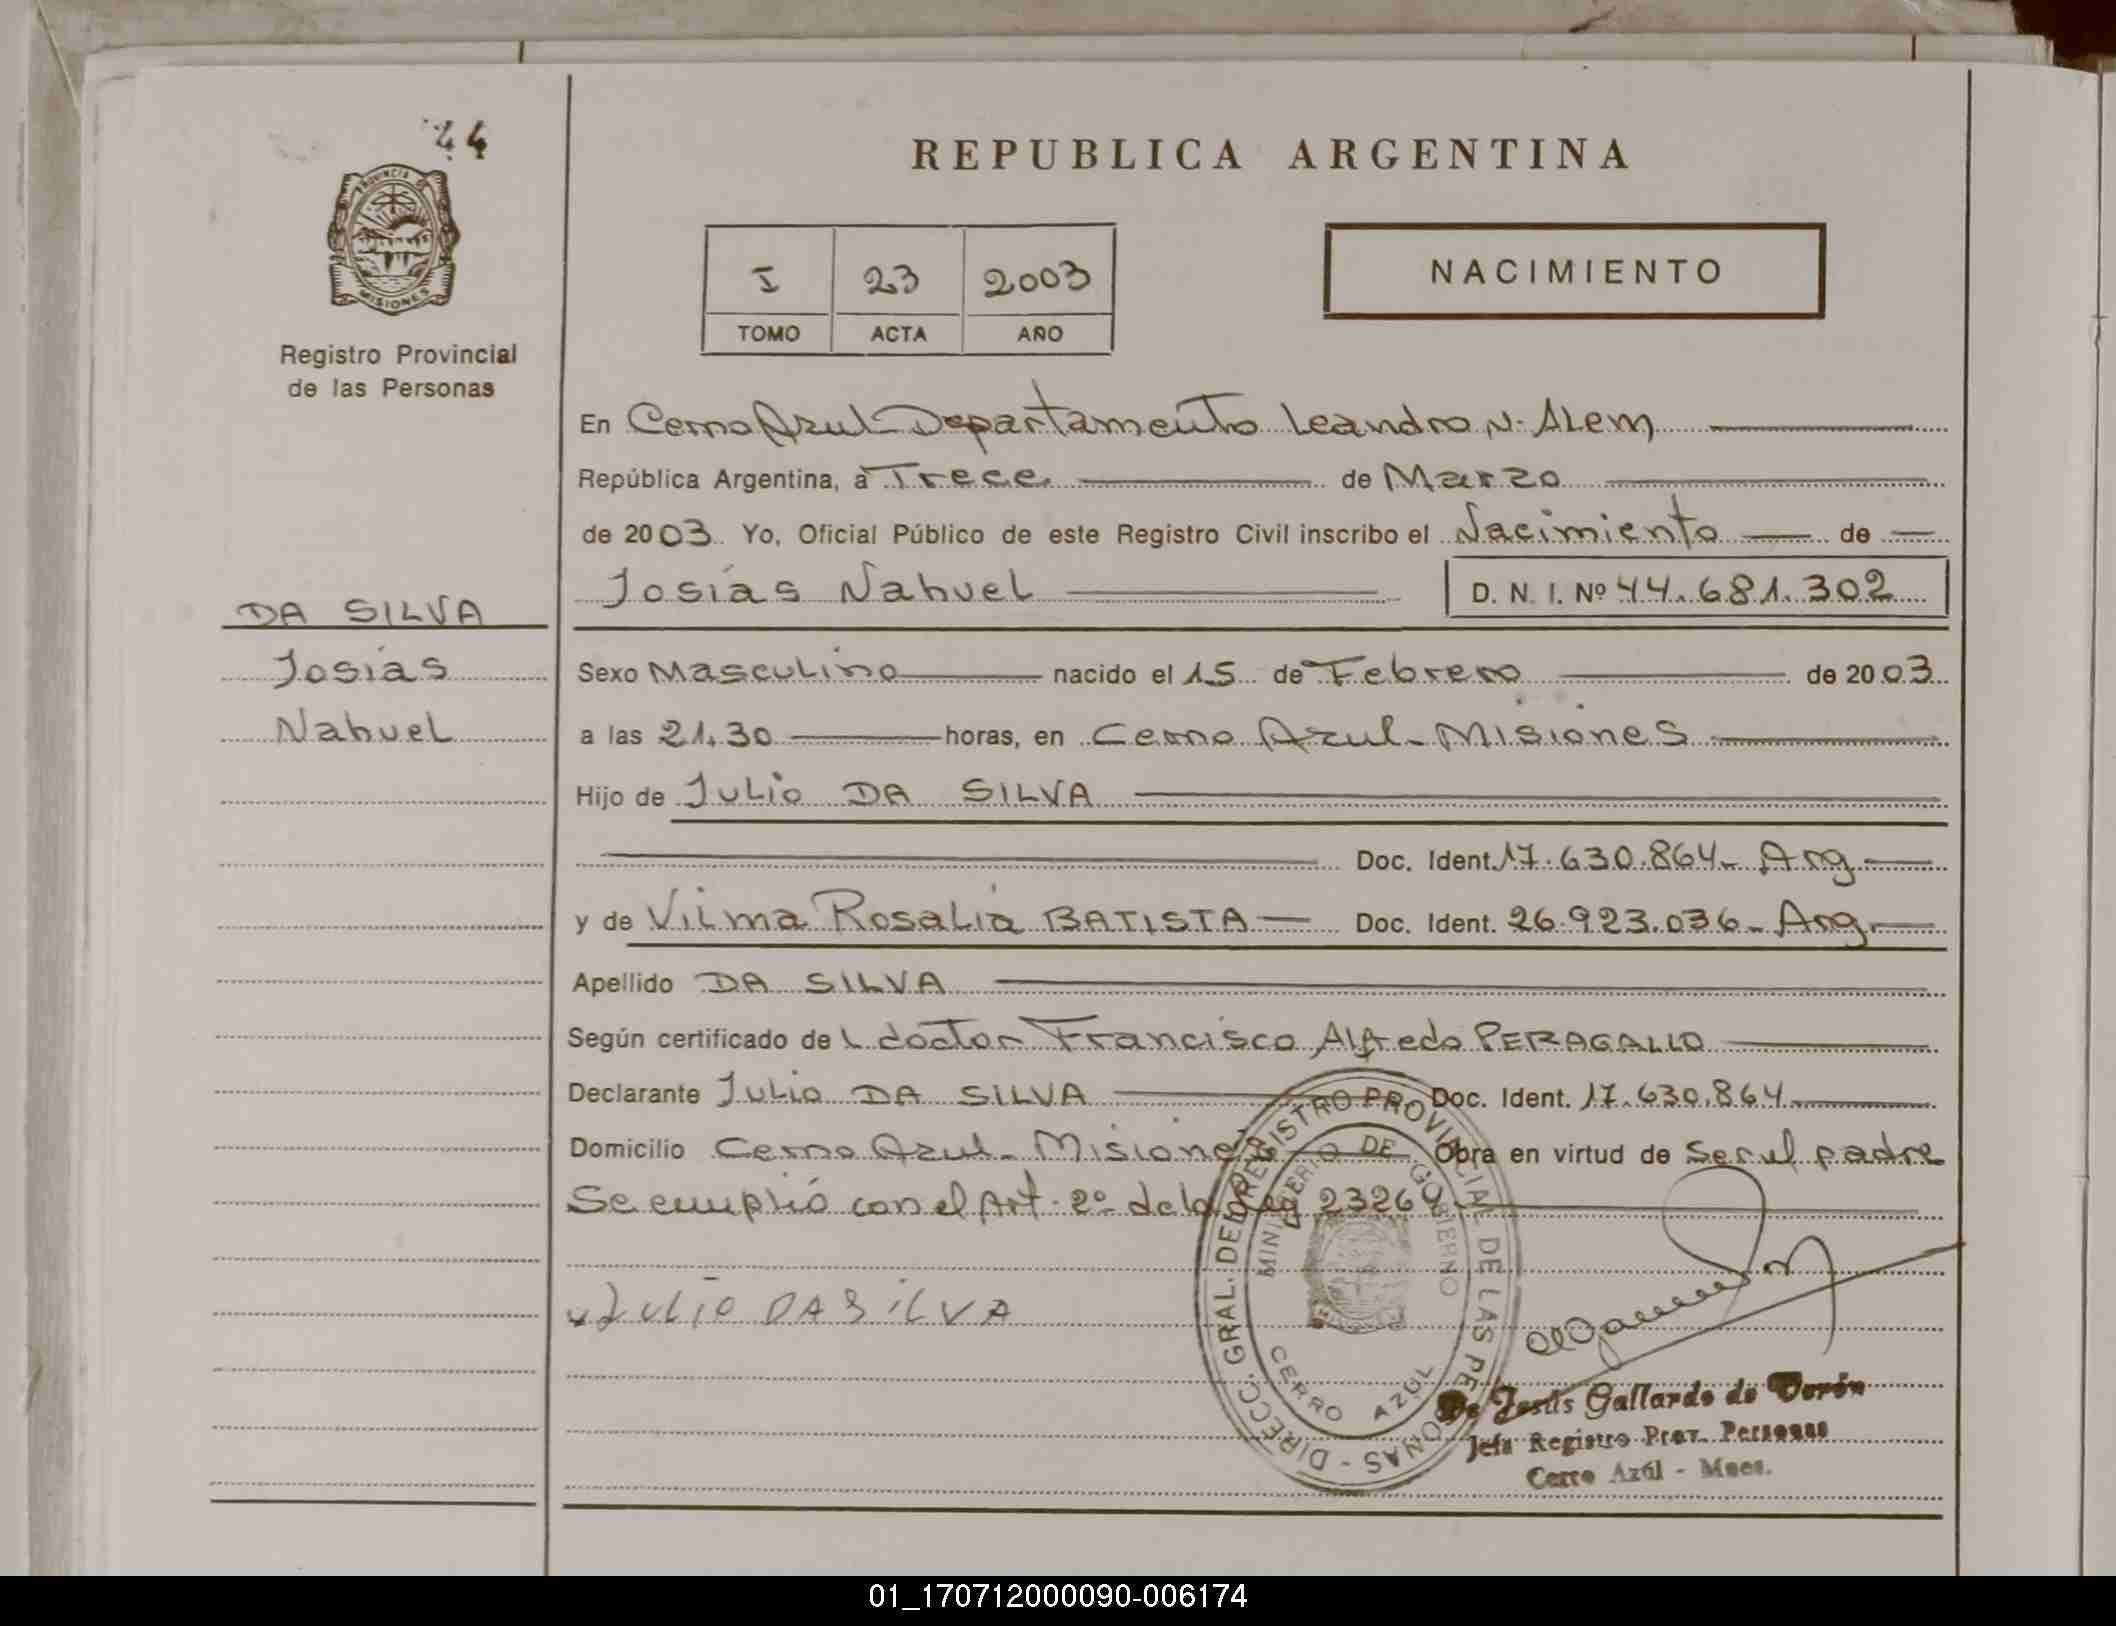 44
PROVINCIA DE
MISIONES
Registro Provincial
de las Personas
DA SILVA
Josías
Nahuel
REPUBLICA ARGENTINA
I 23 2003
TOMO ACTA AÑO
NACIMIENTO
En Cerro Azul-Departamento Leandro N. ALem
República Argentina, a Trece de Marzo
de 2003 Yo, Oficial Público de este Registro Civil inscribo el Nacimiento de
Josías Nahuel D. N. I. Nº 44.681.302
Sexo Masculino nacido el 15 de Febrero de 2003
a las 21.30 horas, en Cerro Azul-Misiones
Hijo de Julio DA SILVA
Doc. Ident. 17.630.864- Arg
y de Vilma Rosalía BATISTA Doc. Ident. 26.923.036- Arg
Apellido DA SILVA
Según certificado de L doctor Francisco Alfredo PERAGALLO
Declarante Julio DA SILVA Doc. Ident. 17.630.864
Domicilio Cerro Azul- Misiones Obra en virtud de Ser el padre
Se cumplió con el Art. 2º de la Ley 23264
JULIO DA SILVA
DIRECC. GRAL. DEL REGISTRO PROVINCIAL DE LAS PERSONAS -
MINISTERIO DE GOBIERNO
CERRO AZUL
De Jesús Gallardo de Verón
Jefa Registro Prov. Personas
Cerro Azúl - Mnes.
01_170712000090-006174